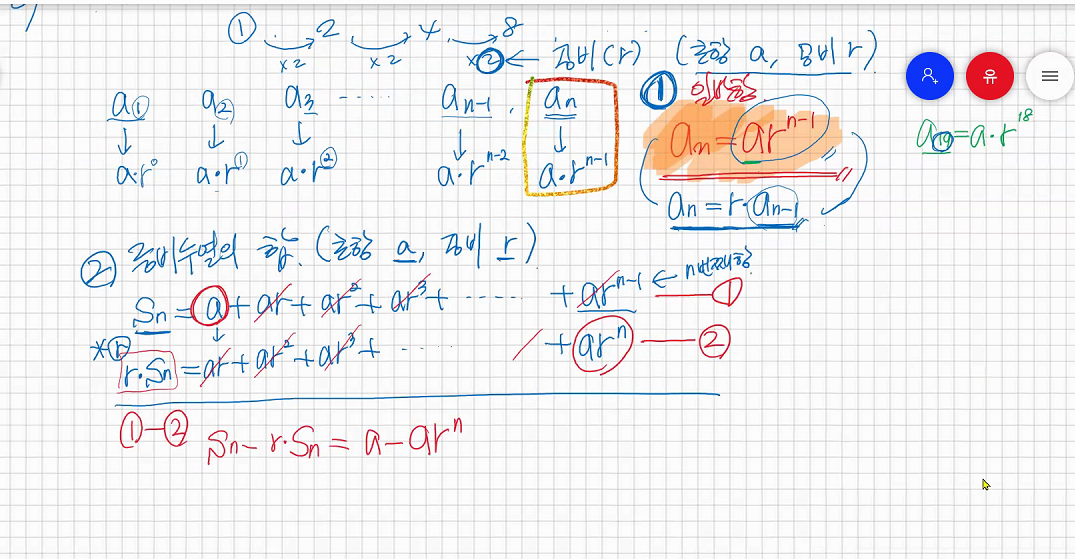 ① 2 4 8
×2 ×2 ×② ← 공비(r) (초항 a, 공비 r)
a① a② a₃ ····· aₙ₋₁, aₙ
↓ ↓ ↓ ↓ ↓
a·r⁰ a·r① a·r② a·rⁿ⁻² a·rⁿ⁻¹
① 일반항
aₙ = arⁿ⁻¹
aₙ = r·aₙ₋₁
유
a₁₉ = a·r¹⁸
② 등비수열의 합. (초항 a, 공비 r)
Sₙ = a + ar + ar² + ar³ + ······ + arⁿ⁻¹ ← n번째항 ①
*r
r·Sₙ = ar + ar² + ar³ + ··· + arⁿ — ②
①-② Sₙ - r·Sₙ = a - arⁿ